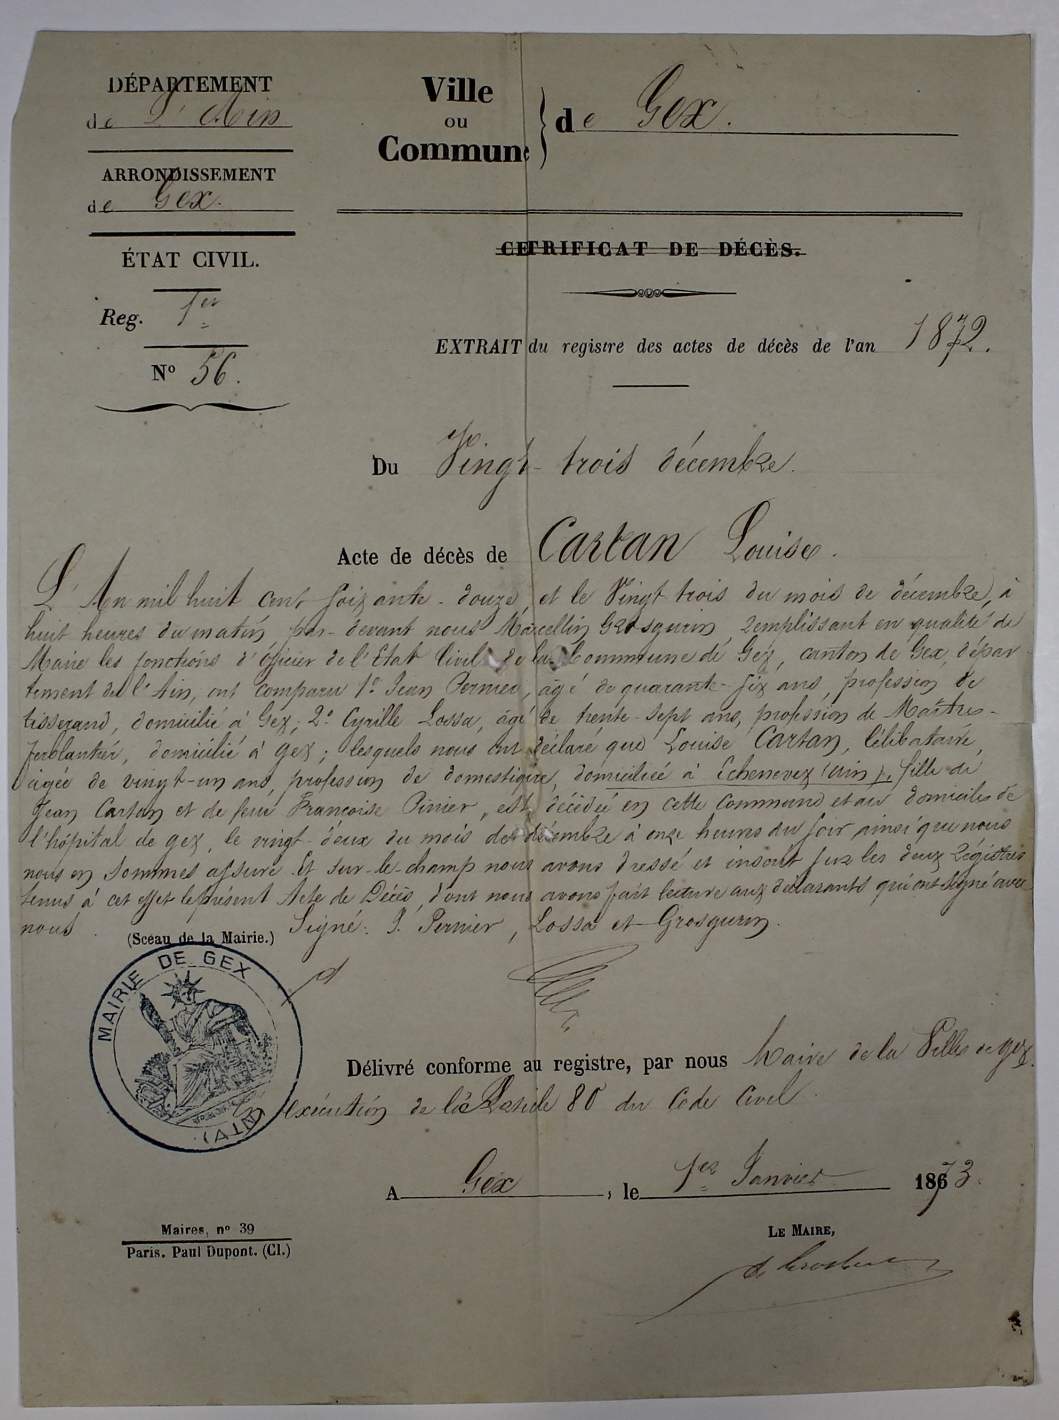 DÉPARTEMENT
de L'Ain
ARRONDISSEMENT
de Gex.
ÉTAT CIVIL.
Reg. 1er
Nº 56.
Ville
ou
Commune
de Gex.
CETRIFICAT DE DÉCÈS.
EXTRAIT du registre des actes de décès de l'an 1872.
Du Vingt-trois décembre.
Acte de décès de Cartan Louise.
L'An mil huit cent soixante-douze, et le Vingt trois du mois de décembre, à
huit heures du matin, par-devant nous Marcellin Grosgurin, remplissant en qualité de
Maire les fonctions d'officier de l'Etat Civil de la Commune de Gex, canton de Gex, dépar-
tement de l'Ain, ont comparu 1º Jean Pernier, âgé de quarante-six ans, profession de
tisserand, domicilié à Gex; 2º Cyrille Lossa, âgé de trente-sept ans, profession de Maître-
ferblantier, domicilié à Gex; lesquels nous ont déclaré que Louise Cartan, Célibataire,
âgée de vingt-un ans, profession de domestique, domiciliée à Echenevex (Ain), fille de
Jean Cartan et de feue Françoise Pinier, est décédée en cette commune et au domicile de
l'hôpital de gex, le vingt-deux du mois de décembre à onze heures du soir ainsi que nous
nous en sommes assuré. Et sur-le-champ nous avons dressé et inscrit sur les deux Régistres
tenus à cet effet le présent Acte de Décès, dont nous avons fait lecture aux déclarants qui ont signé avec
nous. Signé: J. Pernier, Lossa et Grosgurin.
(Sceau de la Mairie.)
MAIRIE DE GEX
(AIN)
Délivré conforme au registre, par nous Maire de la Ville de gex.
En exécution de l'Article 80 du Code Civil.
A Gex, le 1er Janvier 1873.
LE MAIRE,
Maires, nº 39
Paris. Paul Dupont. (Cl.)